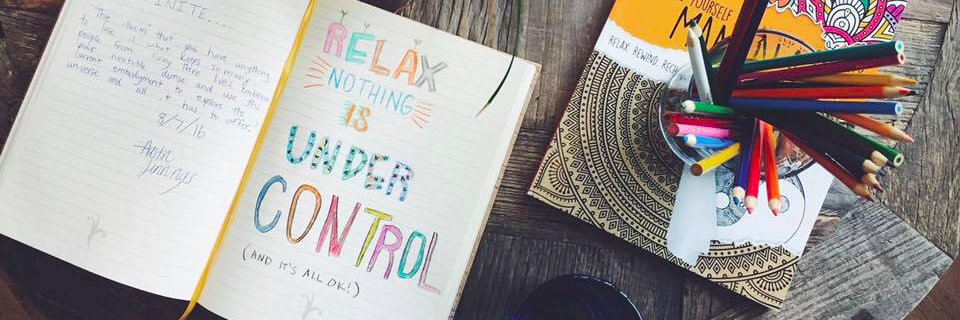 The that you have anything
to lose is what keeps so many
people from living there lives. Embrace
your inevitable demise and use this
current embodyment to explore the
universe and all it has to offer.
8/7/16
Austin
Jennings
RELAX
NOTHING
IS
UNDER
CONTROL
(AND IT'S ALL OK!)
YOURSELF
RELAX. REWIND.